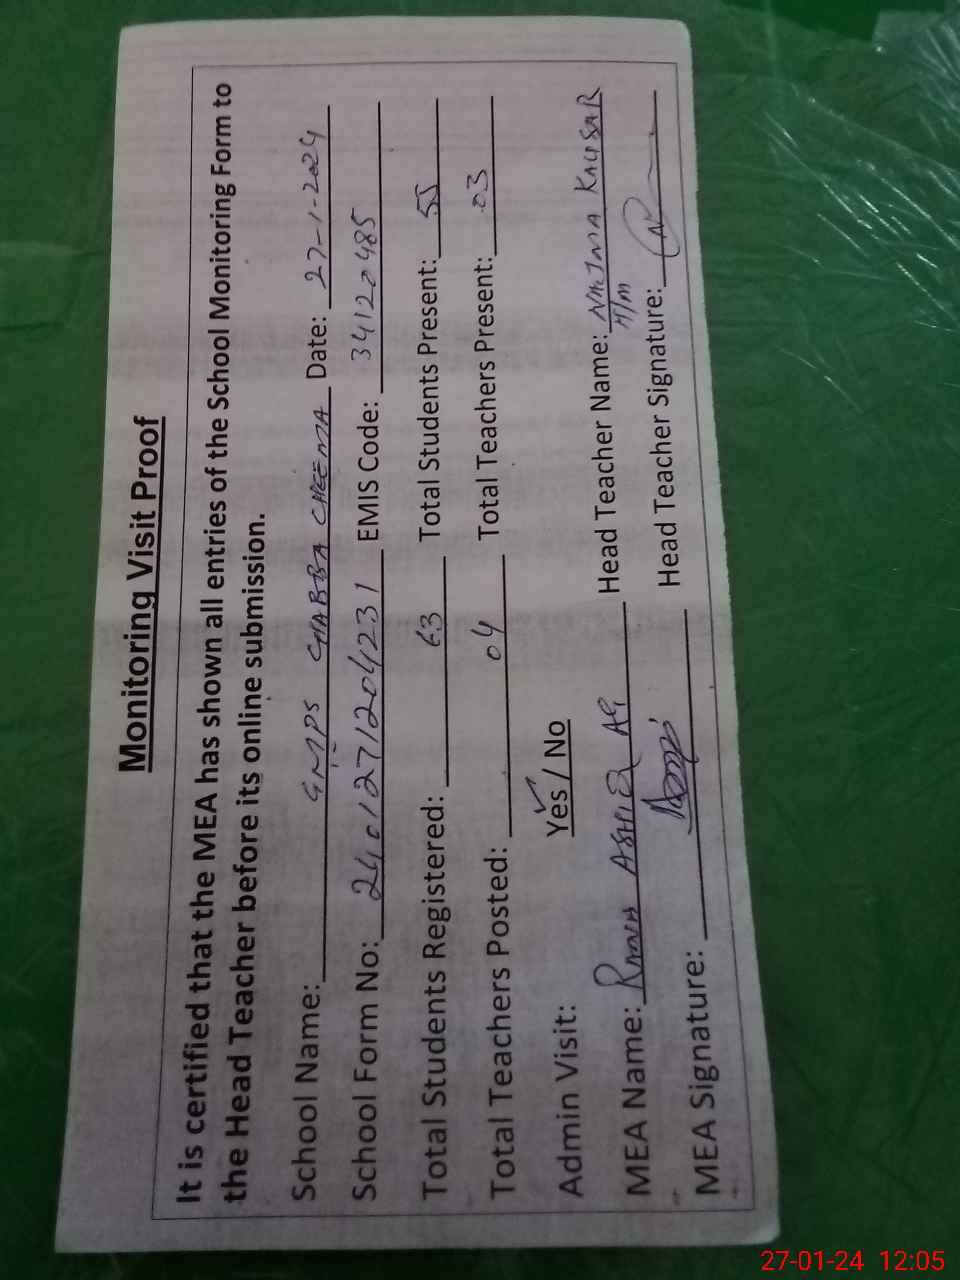 Monitoring Visit Proof
It is certified that the MEA has shown all entries of the School Monitoring Form to
the Head Teacher before its online submission.
School Name: GMPS CHABBA CHEEMA Date: 27-1-2024
School Form No: 2401271204231 EMIS Code: 34120485
Total Students Registered: 63 Total Students Present: 55
Total Teachers Posted: 04 Total Teachers Present: 03
Admin Visit: Yes / No
MEA Name: ASHIQ Ali Head Teacher Name: NAJMA KAUSAR
H/M
MEA Signature: Head Teacher Signature:
27-01-24 12:05